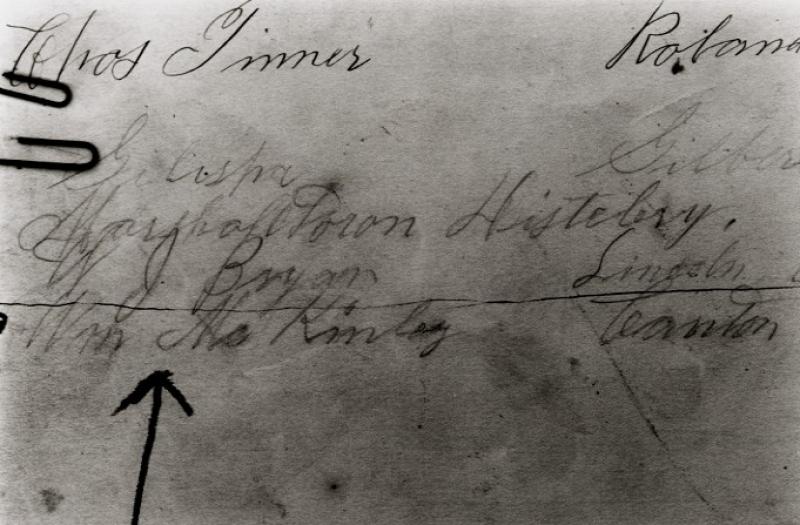 Thos Tinner Roland
Gilespa Gilber
Marshalltown Distelery,
W J Bryan Lincoln
Wm McKinley Canton